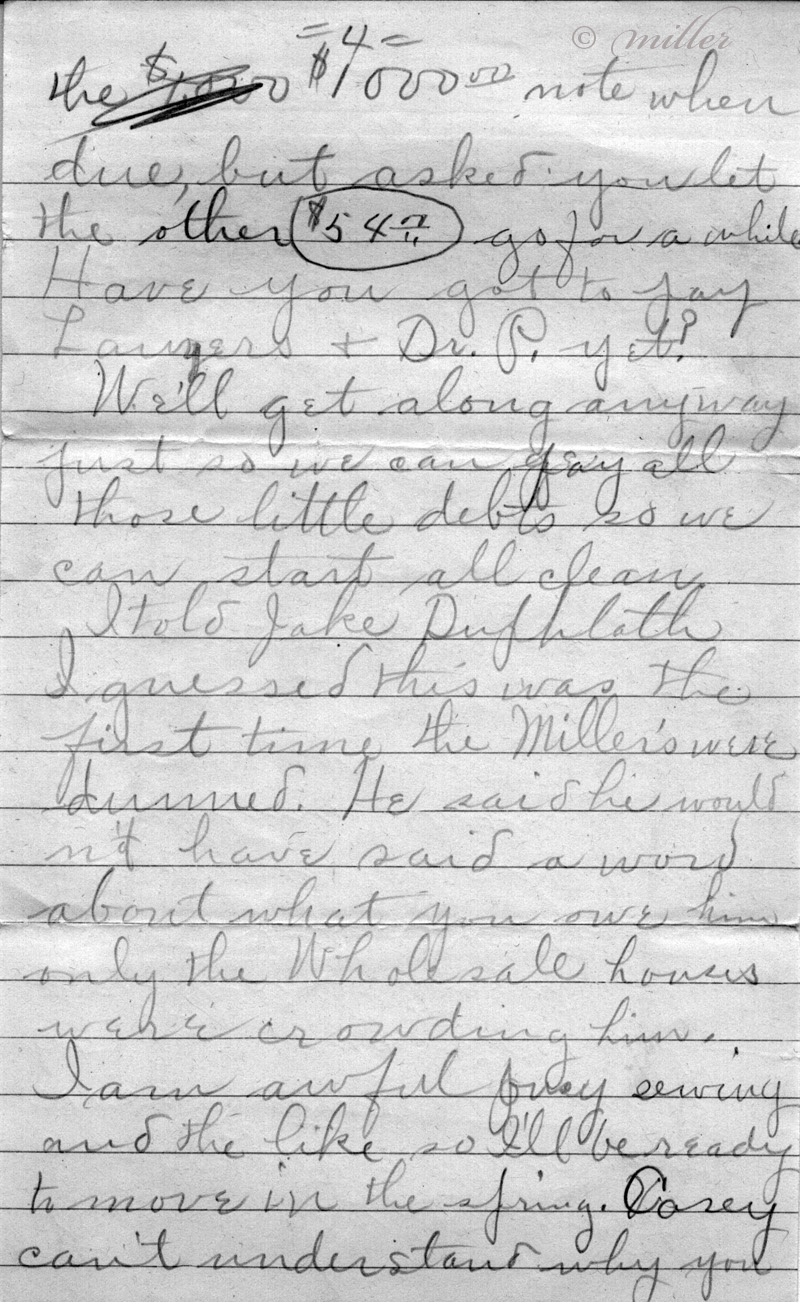 © miller
=4=
the $1,000 $1000.00 note when
due, but asked you let
the other $54 go for a while
Have you got to pay
Lawyers + Dr. P. yet?
We'll get along anyway
just so we can pay all
those little debts so we
can start all clean.
I told Jake
I guessed this was the
first time the Miller's were
dunned. He said he would
n't have said a word
about what you owe him
only the Wholesale houses
were crowding him.
I am awful busy sewing
and the like so I'll be ready
to move in the spring. Casey
can't understand why you